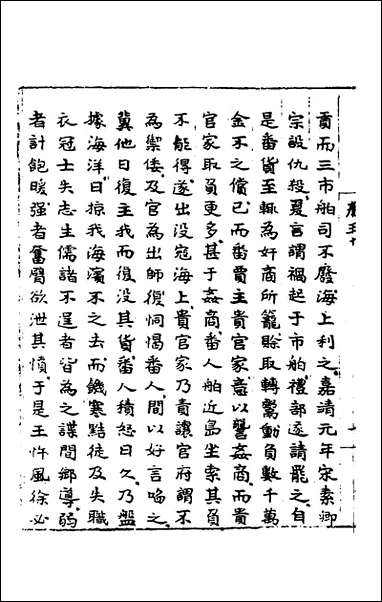 貢而三市舶司不廢海上利之嘉靖元年宋素卿
宗設仇殺夏言謂禍起于市舶禮部遂請罷之自
是番貨至輒為奸商所籠賒取轉鬻動負數千萬
金不之償已而番賈主貴官家意以讐姦商而貴
官家取負更多甚于姦商番人舶近島坐索其負
不能得遂出沒寇海上貴官家乃責讓官府謂不
為禦倭及官為出師復恫愒番人間以好言啗之
冀他日復主我而復沒其貨番人積怨日久乃盤
據海洋日掠我海濱不之去而饑寒黠徒及失職
衣冠士失志生儒諸不逞者皆為之諜間鄉導弱
者計飽暖强者奮臂欲泄其憤于是王忤風徐必